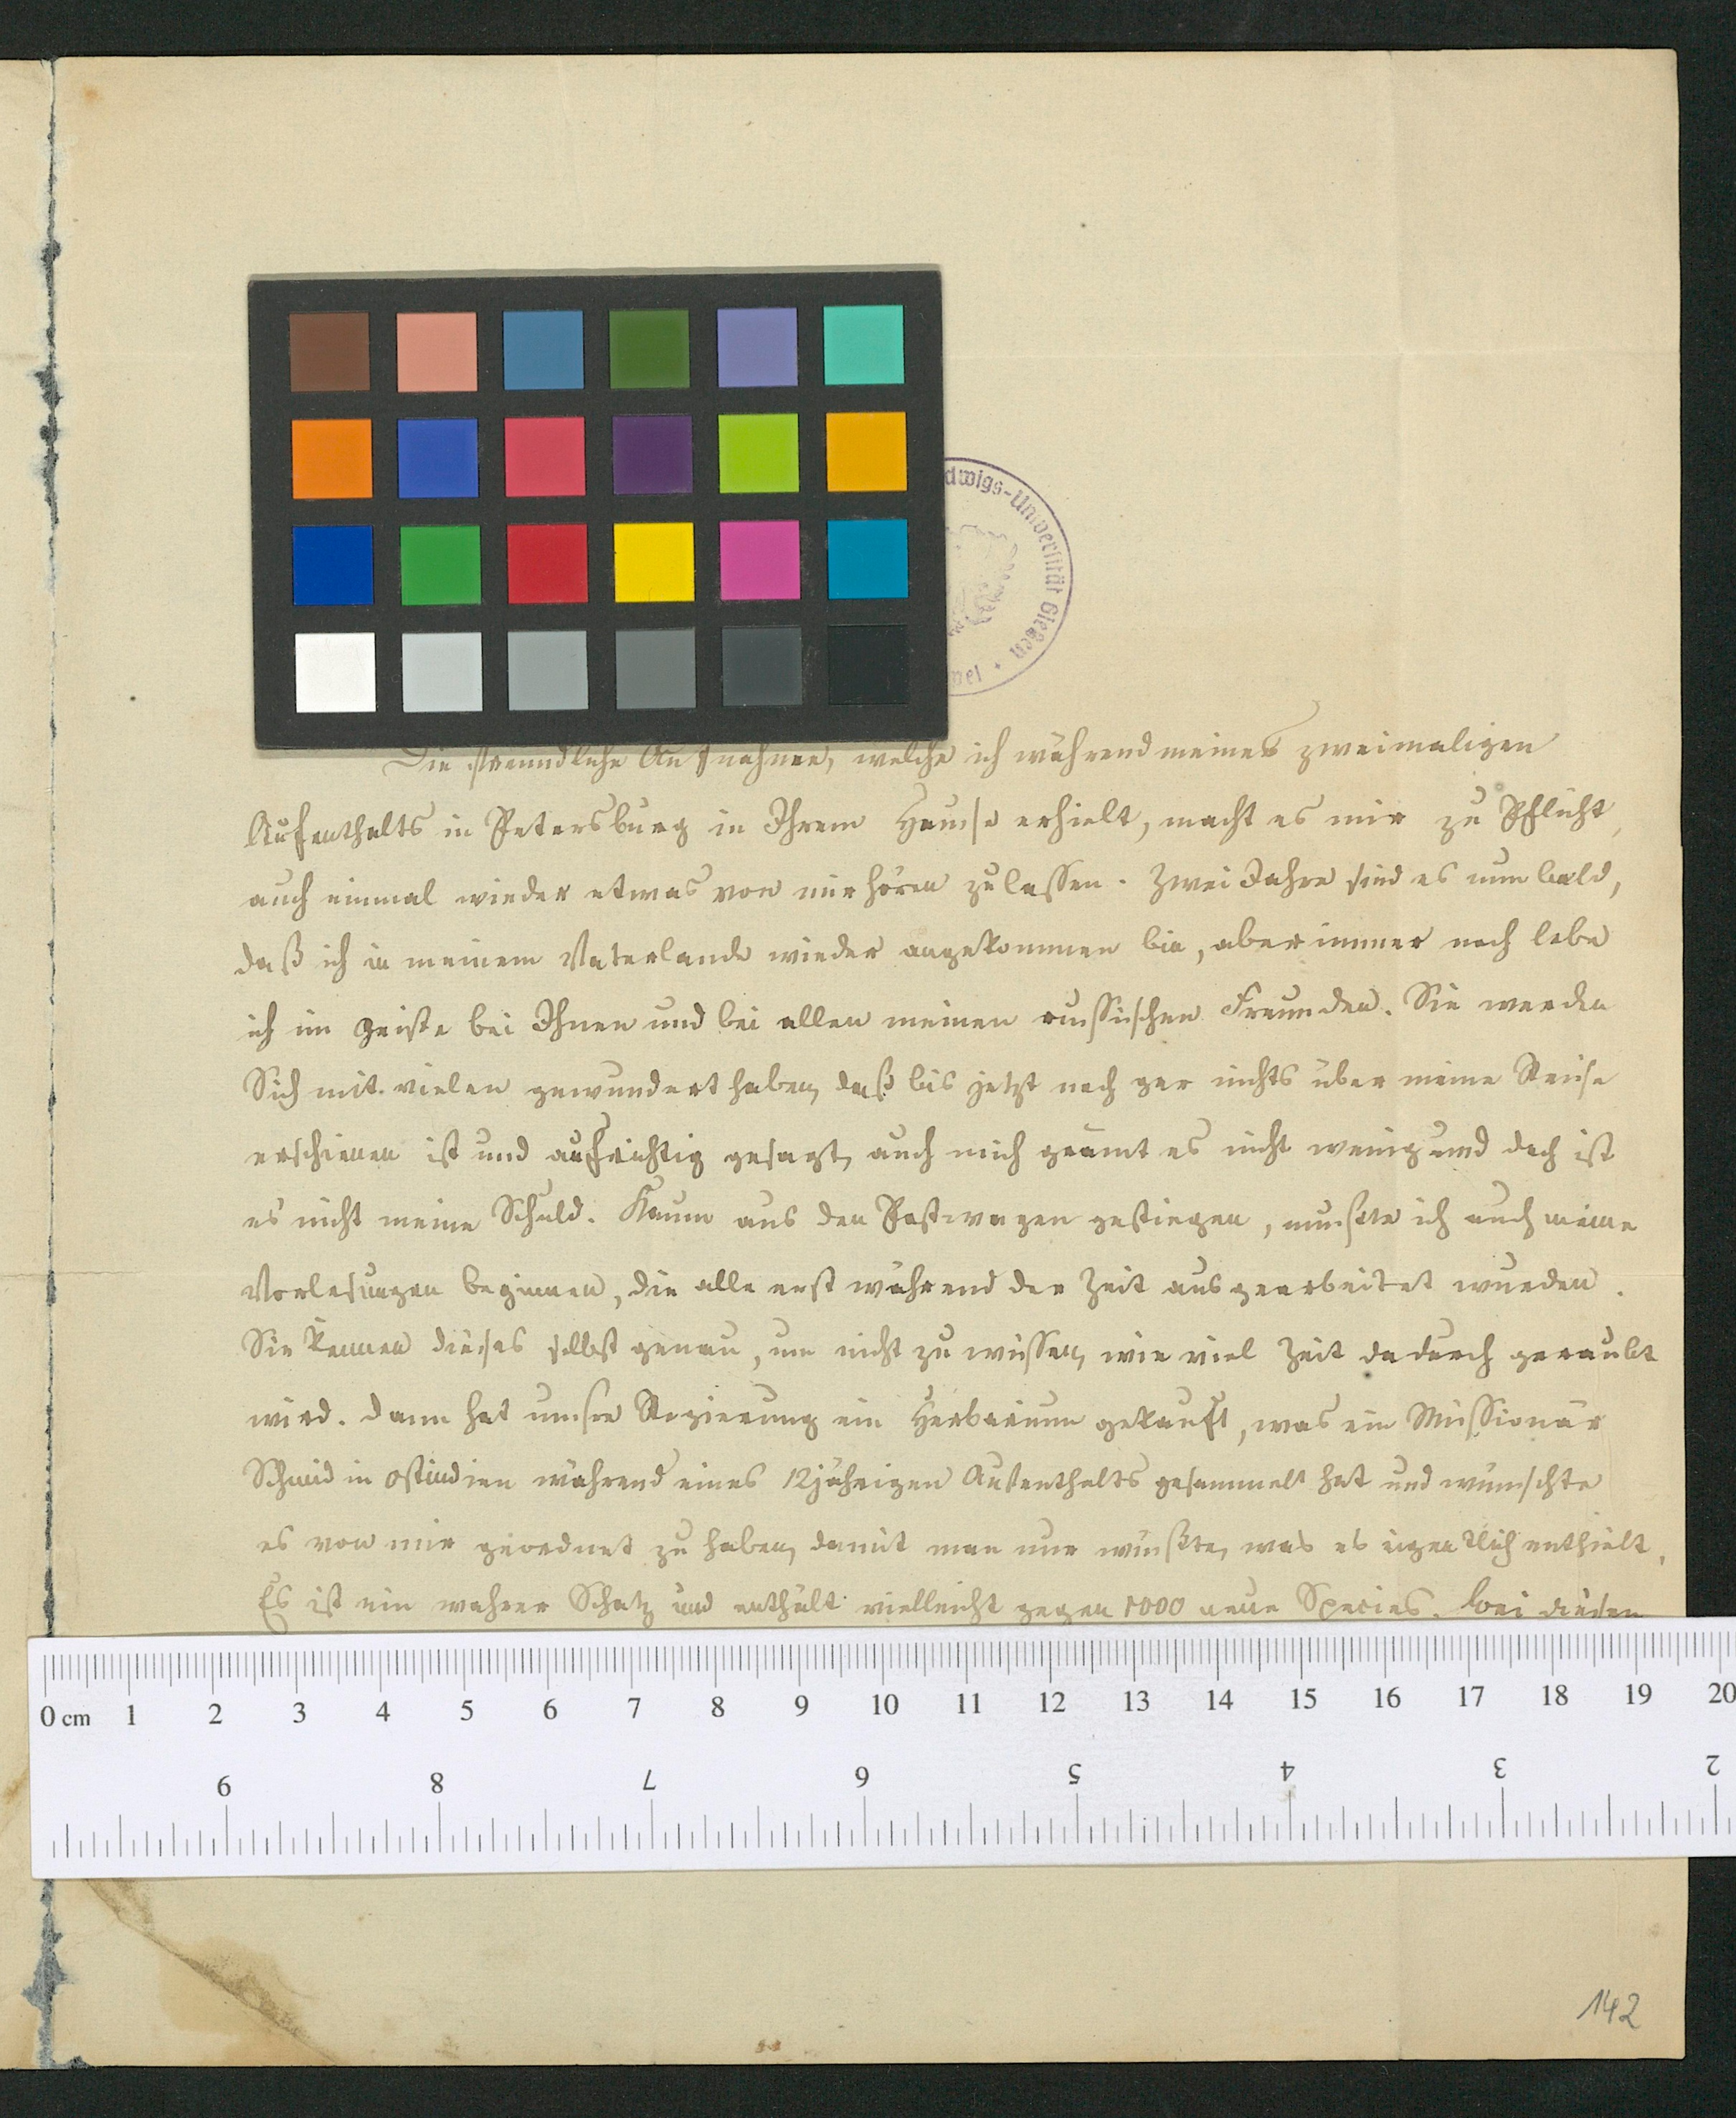 dwigs-Universität Gießen
Die freundliche Aufnahme, welche ich während meines zweimaligen
Aufenthalts in Petersburg in Ihrem Hause erhielt, macht es mir zu Pflicht,
auch einmal wieder etwas von mir hören zu lassen. Zwei Jahre sind es nun bald,
daß ich in meinem Vaterlande wieder angekommen bin, aber immer noch lebe
ich im Geiste bei Ihnen und bei allen meinen russischen Freunden. Sie werden
Sich mit vielen gewundert haben, daß bis jetzt noch gar nichts über meine Reise
erschienen ist und aufrichtig gesagt, auch mich grämt es nicht wenig und doch ist
es nicht meine Schuld. Kaum aus den Postwagen gestiegen, mußte ich auch meine
Vorlesungen beginnen, die alle erst während der Zeit ausgearbeitet wurden.
Sie kennen dieses selbst genau, um nicht zu wissen, wie viel Zeit dadurch geraubt
wird. Dann hat unsre Regierung ein Herbarium gekauft, was ein Missionär
Schmid in Ostindien während eines 12jährigen Aufenthalts gesammelt hat und wünschte
es von mir geordnet zu haben, damit man nur wüßte, was es eigentlich enthielt.
Es ist ein wahrer Schatz und enthält vielleicht gegen 1000 neue Species. Bei diesen
0 cm 1 2 3 4 5 6 7 8 9 10 11 12 13 14 15 16 17 18 19 20
9 8 7 6 5 4 3 2
142